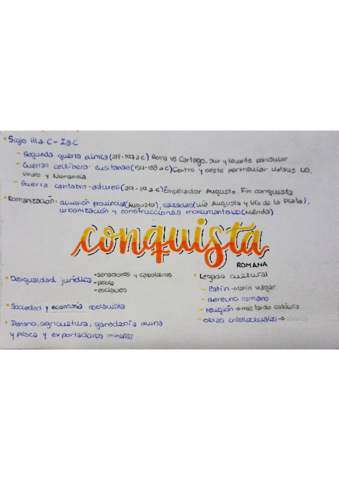 • Siglo III a C - I a C
- Segunda guerra púnica (219-197 a c) Roma vs Cartago. Sur y levante peninsular
- Guerras celtíbero lusitanas (154-133 a c) Centro y oeste peninsular
y Numancia
- Guerra cántabro-astures (29-19 a c) Emperador Augusto. Fin conquista
• Romanización: división provincial (Augusto), calzadas (Vía Augusta y Vía de la Plata),
urbanización y construcciones monumentales (Mérida)
conquista
ROMANA
• Desigualdad jurídica - senadores y caballeros
- plebe
- esclavos
• Sociedad y economía esclavista
• Denario, agricultura, ganadería ovina
y pesca y exportaciones minerales
• Legado cultural
- latín → latín vulgar
- derecho romano
- religión → más tarde católica
- obras intelectuales →